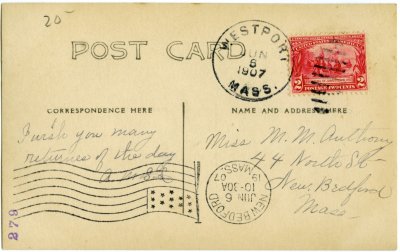 20-
POST CARD
WESTPORT
JUN
5
1907
MASS.
2 POSTAGE TWO CENTS 2
CORRESPONDENCE HERE
NAME AND ADDRESS HERE
I wish you many
returns of the day
Miss M. M. Anthony
44 North St
New Bedford
Mass-
NEW BEDFORD
JUN 6
10-30A
MASS.
279